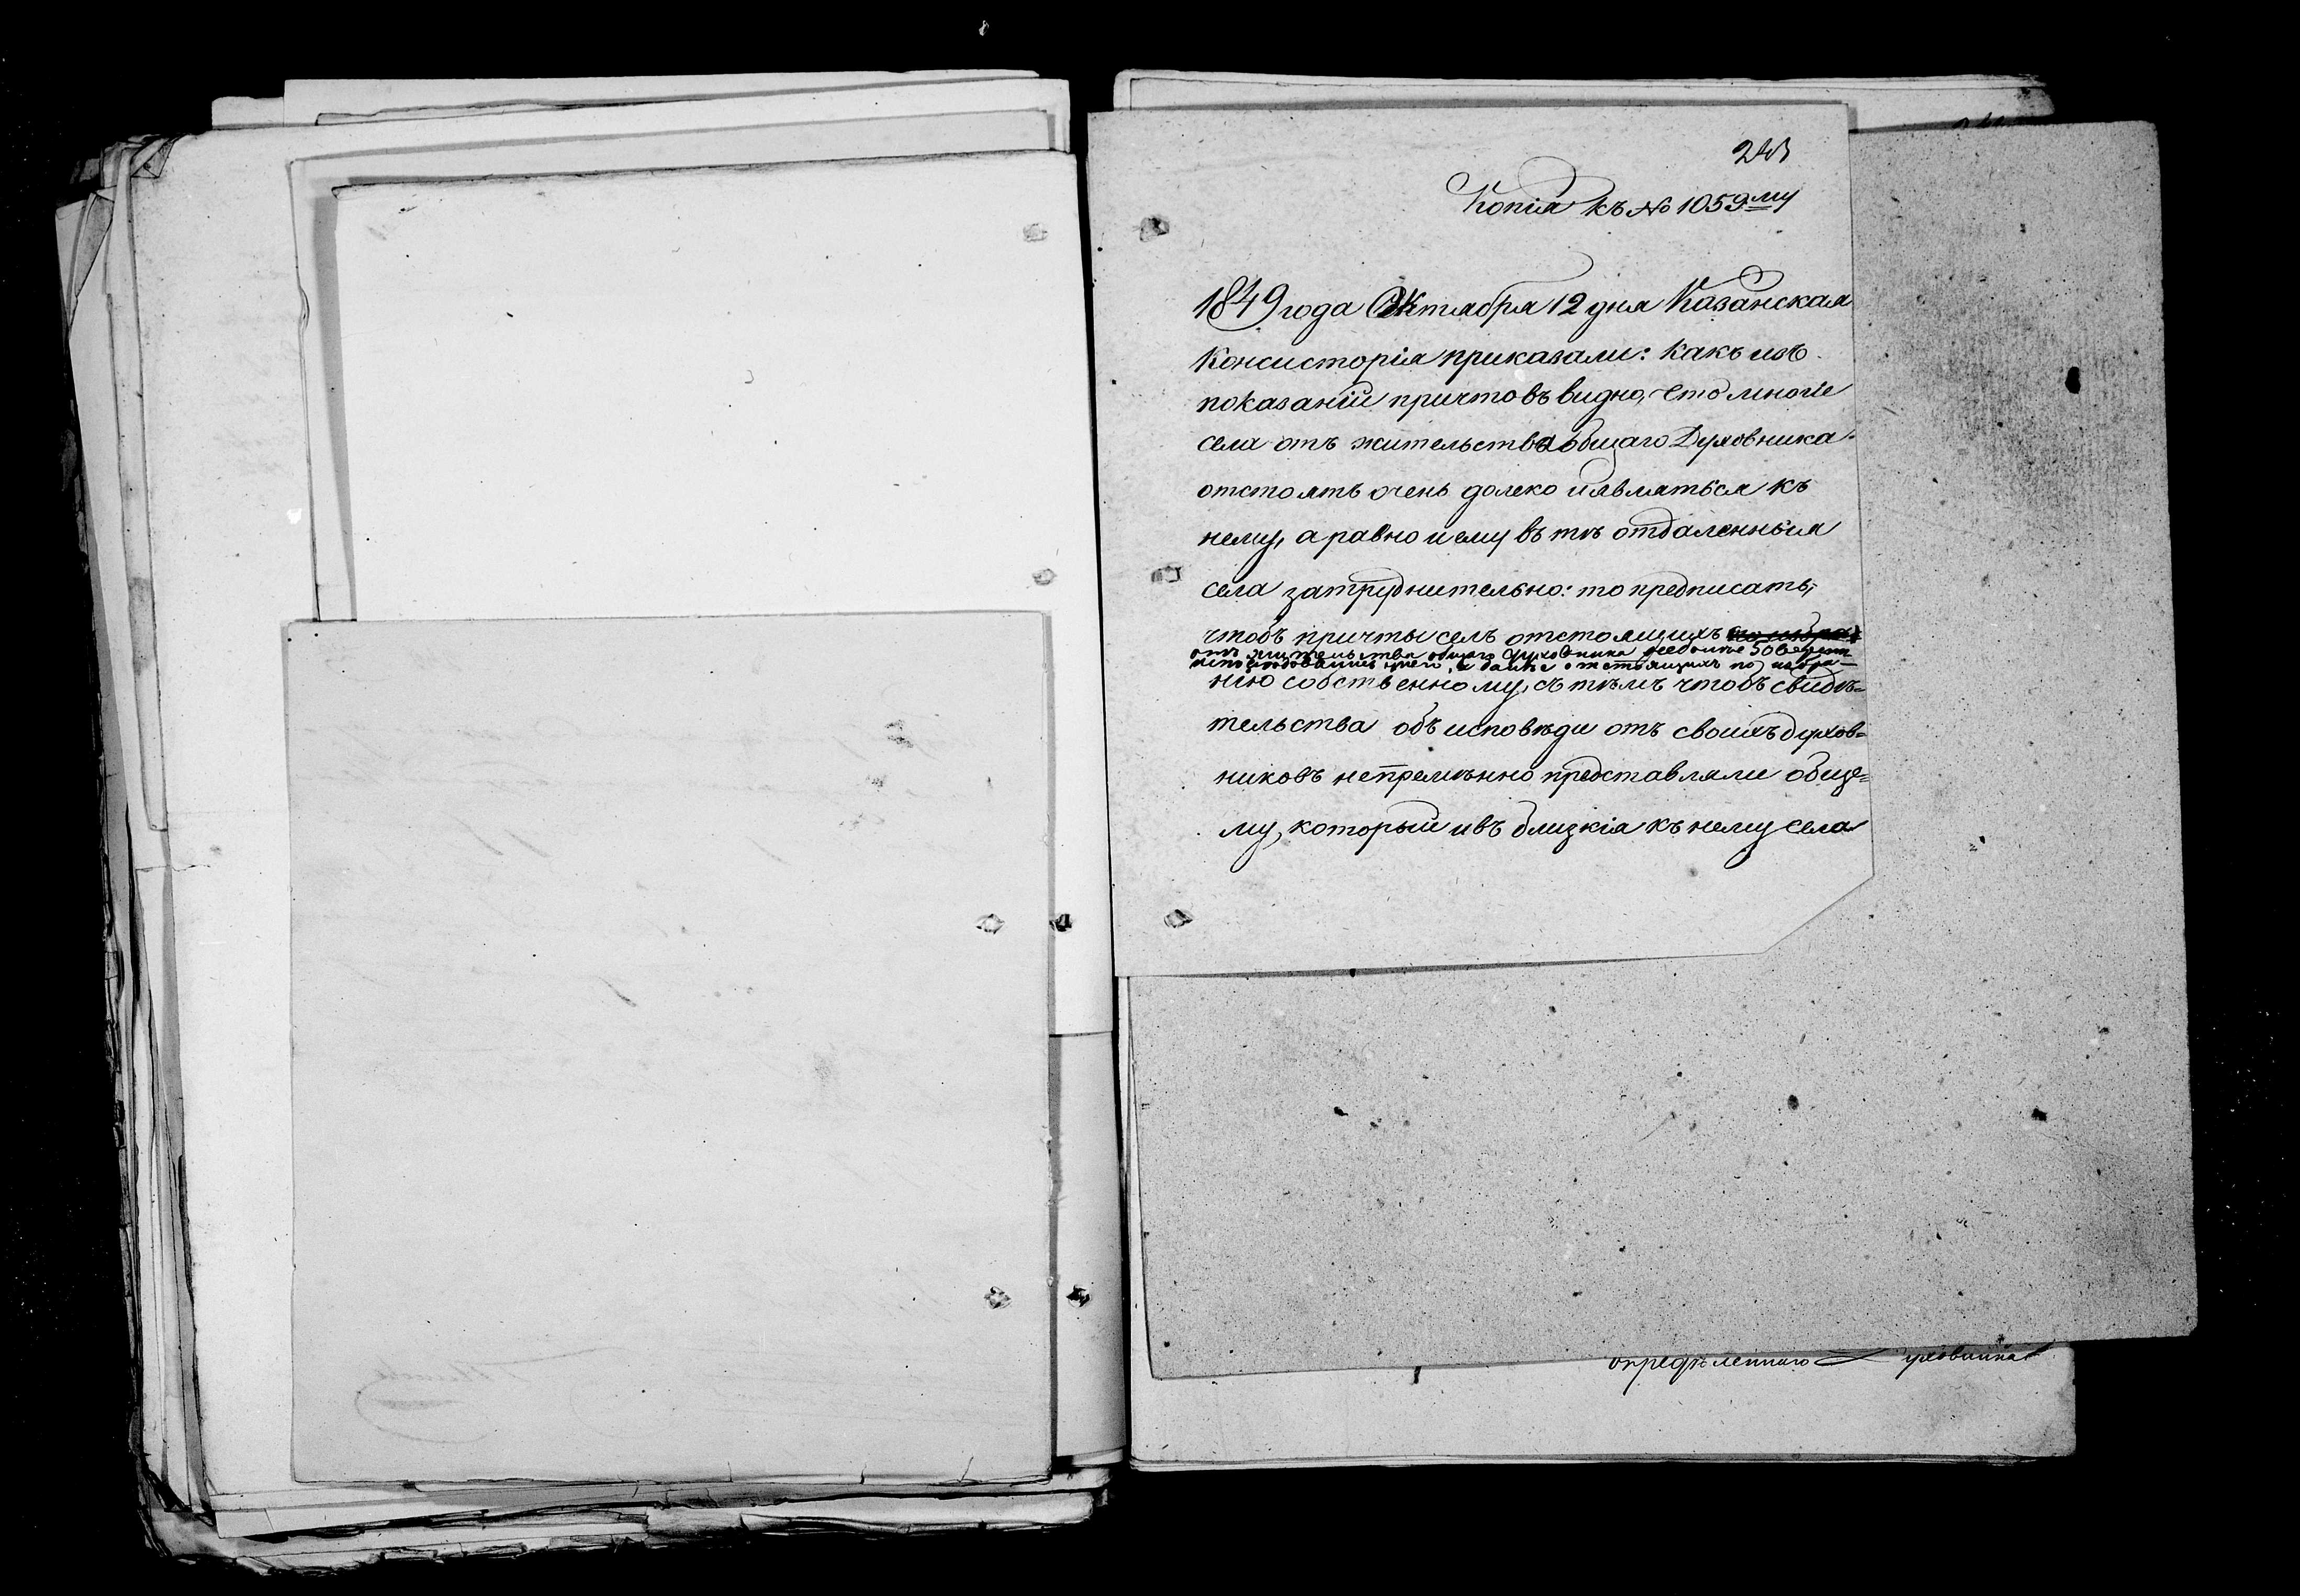 Копія къ № 1059му
1849 года Октября 12 дня Казанская
Консисторія приказали: какъ изъ
показаній причтовъ видно, что многіе
села отъ жительства общаго Духовника
отстоятъ очень далеко и являться къ
нему, а равно и ему въ тѣ отдаленныя
села затруднительно: то предписать,
чтобъ причты селъ отстоящихъ
отъ жительства общаго духовника не больше 50 верстъ
исповѣдовались у него, а далѣе отстоящихъ по избра-
нію собственному, съ тѣмъ чтобъ свидѣ=
тельства объ исповѣди отъ своихъ духов=
никовъ непремѣнно представляли обще=
му, который и въ близкія къ нему села
опредѣленнаго уховника